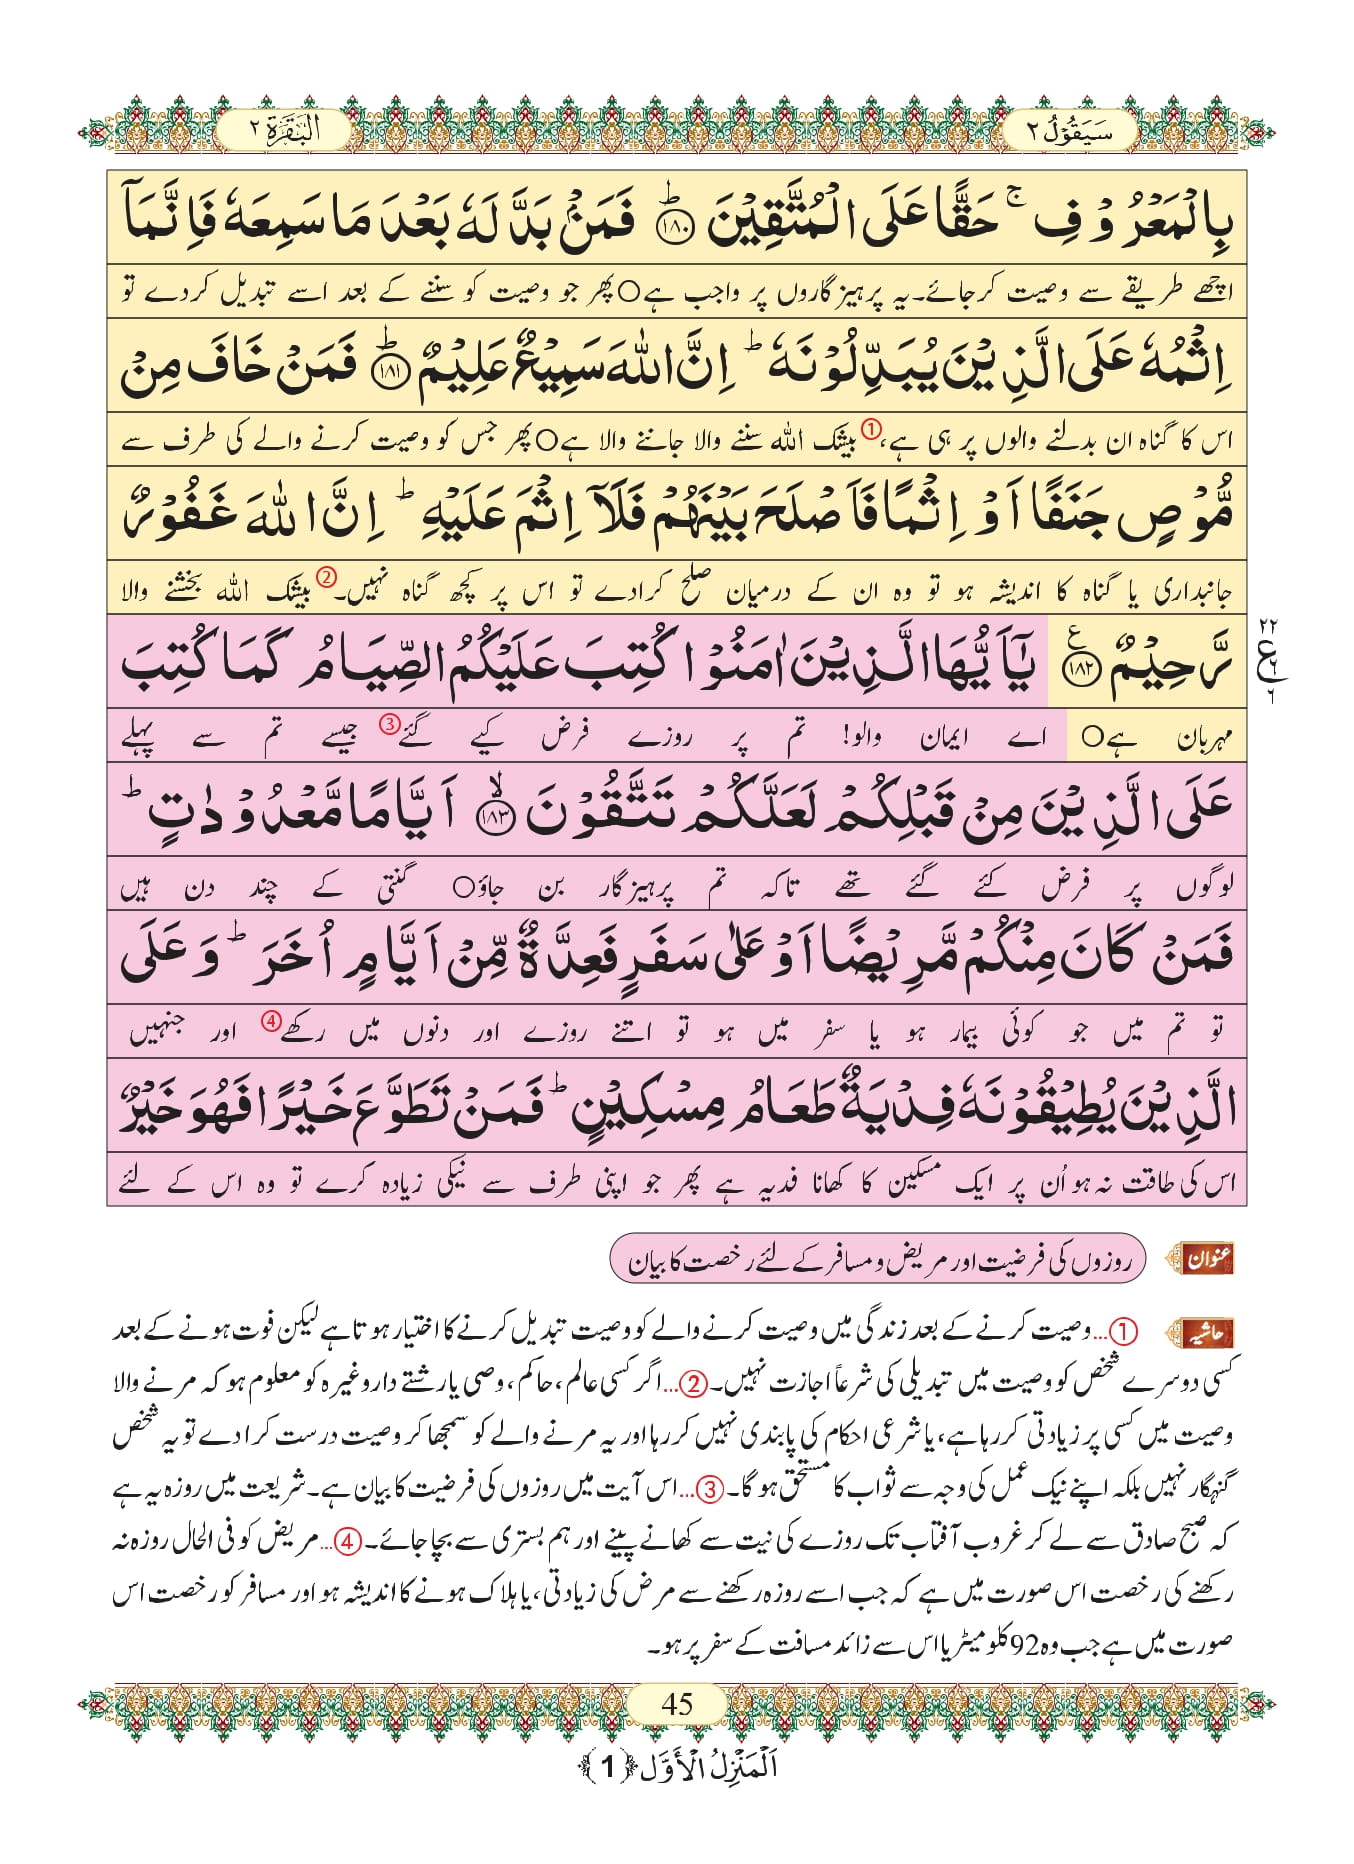 سَيَقُوْلُ ٢
اَلْبَقَرَة ٢
بِالْمَعْرُوْفِ ۚ حَقًّا عَلَى الْمُتَّقِيْنَ ؕ﴿۱۸۰﴾ فَمَنْۢ بَدَّلَهٗ بَعْدَ مَا سَمِعَهٗ فَاِنَّمَاۤ
اچھے طریقے سے وصیت کرجائے۔یہ پرہیزگاروں پر واجب ہے○پھر جو وصیت کو سننے کے بعد اسے تبدیل کردے تو
اِثْمُهٗ عَلَى الَّذِيْنَ يُبَدِّلُوْنَهٗ ؕ اِنَّ اللّٰهَ سَمِيْعٌ عَلِيْمٌ ؕ﴿۱۸۱﴾ فَمَنْ خَافَ مِنْ
اس کا گناہ ان بدلنے والوں پر ہی ہے،① بیشک اللہ سننے والا جاننے والا ہے○پھر جس کو وصیت کرنے والے کی طرف سے
مُّوْصٍ جَنَفًا اَوْ اِثْمًا فَاَصْلَحَ بَيْنَهُمْ فَلَاۤ اِثْمَ عَلَيْهِ ؕ اِنَّ اللّٰهَ غَفُوْرٌ
جانبداری یا گناہ کا اندیشہ ہو تو وہ ان کے درمیان صلح کرادے تو اس پر کچھ گناہ نہیں۔② بیشک اللہ بخشنے والا
رَّحِيْمٌ ﴿۱۸۲﴾ۧ يٰۤاَيُّهَا الَّذِيْنَ اٰمَنُوْا كُتِبَ عَلَيْكُمُ الصِّيَامُ كَمَا كُتِبَ
٢٢
ع ٦
٦
مہربان ہے○ اے ایمان والو! تم پر روزے فرض کیے گئے③ جیسے تم سے پہلے
عَلَى الَّذِيْنَ مِنْ قَبْلِكُمْ لَعَلَّكُمْ تَتَّقُوْنَ ۙ﴿۱۸۳﴾ اَيَّامًا مَّعْدُوْدٰتٍ ؕ
لوگوں پر فرض کئے گئے تھے تاکہ تم پرہیزگار بن جاؤ○ گنتی کے چند دن ہیں
فَمَنْ كَانَ مِنْكُمْ مَّرِيْضًا اَوْ عَلٰى سَفَرٍ فَعِدَّةٌ مِّنْ اَيَّامٍ اُخَرَ ؕ وَ عَلَى
تو تم میں جو کوئی بیمار ہو یا سفر میں ہو تو اتنے روزے اور دنوں میں رکھے④ اور جنہیں
الَّذِيْنَ يُطِيْقُوْنَهٗ فِدْيَةٌ طَعَامُ مِسْكِيْنٍ ؕ فَمَنْ تَطَوَّعَ خَيْرًا فَهُوَ خَيْرٌ
اس کی طاقت نہ ہو اُن پر ایک مسکین کا کھانا فدیہ ہے پھر جو اپنی طرف سے نیکی زیادہ کرے تو وہ اس کے لئے
عنوان روزوں کی فرضیت اور مریض و مسافر کے لئے رخصت کا بیان
حاشیہ ①...وصیت کرنے کے بعد زندگی میں وصیت کرنے والے کو وصیت تبدیل کرنے کا اختیار ہوتا ہے لیکن فوت ہونے کے بعد
کسی دوسرے شخص کو وصیت میں تبدیلی کی شرعاً اجازت نہیں۔②...اگر کسی عالم، حاکم، وصی یا رشتے دار وغیرہ کو معلوم ہو کہ مرنے والا
وصیت میں کسی پر زیادتی کررہا ہے، یا شرعی احکام کی پابندی نہیں کررہا اور یہ مرنے والے کو سمجھا کر وصیت درست کرادے تو یہ شخص
گنہگار نہیں بلکہ اپنے نیک عمل کی وجہ سے ثواب کا مستحق ہوگا۔③...اس آیت میں روزوں کی فرضیت کا بیان ہے۔شریعت میں روزہ یہ ہے
کہ صبح صادق سے لے کر غروب آفتاب تک روزے کی نیت سے کھانے پینے اور ہم بستری سے بچا جائے۔④...مریض کو فی الحال روزہ نہ
رکھنے کی رخصت اس صورت میں ہے کہ جب اسے روزہ رکھنے سے مرض کی زیادتی، یا ہلاک ہونے کا اندیشہ ہو اور مسافر کو رخصت اس
صورت میں ہے جب وہ 92 کلومیٹر یا اس سے زائد مسافت کے سفر پر ہو۔
45
اَلْمَنْزِلُ الْاَوَّل ﴿1﴾